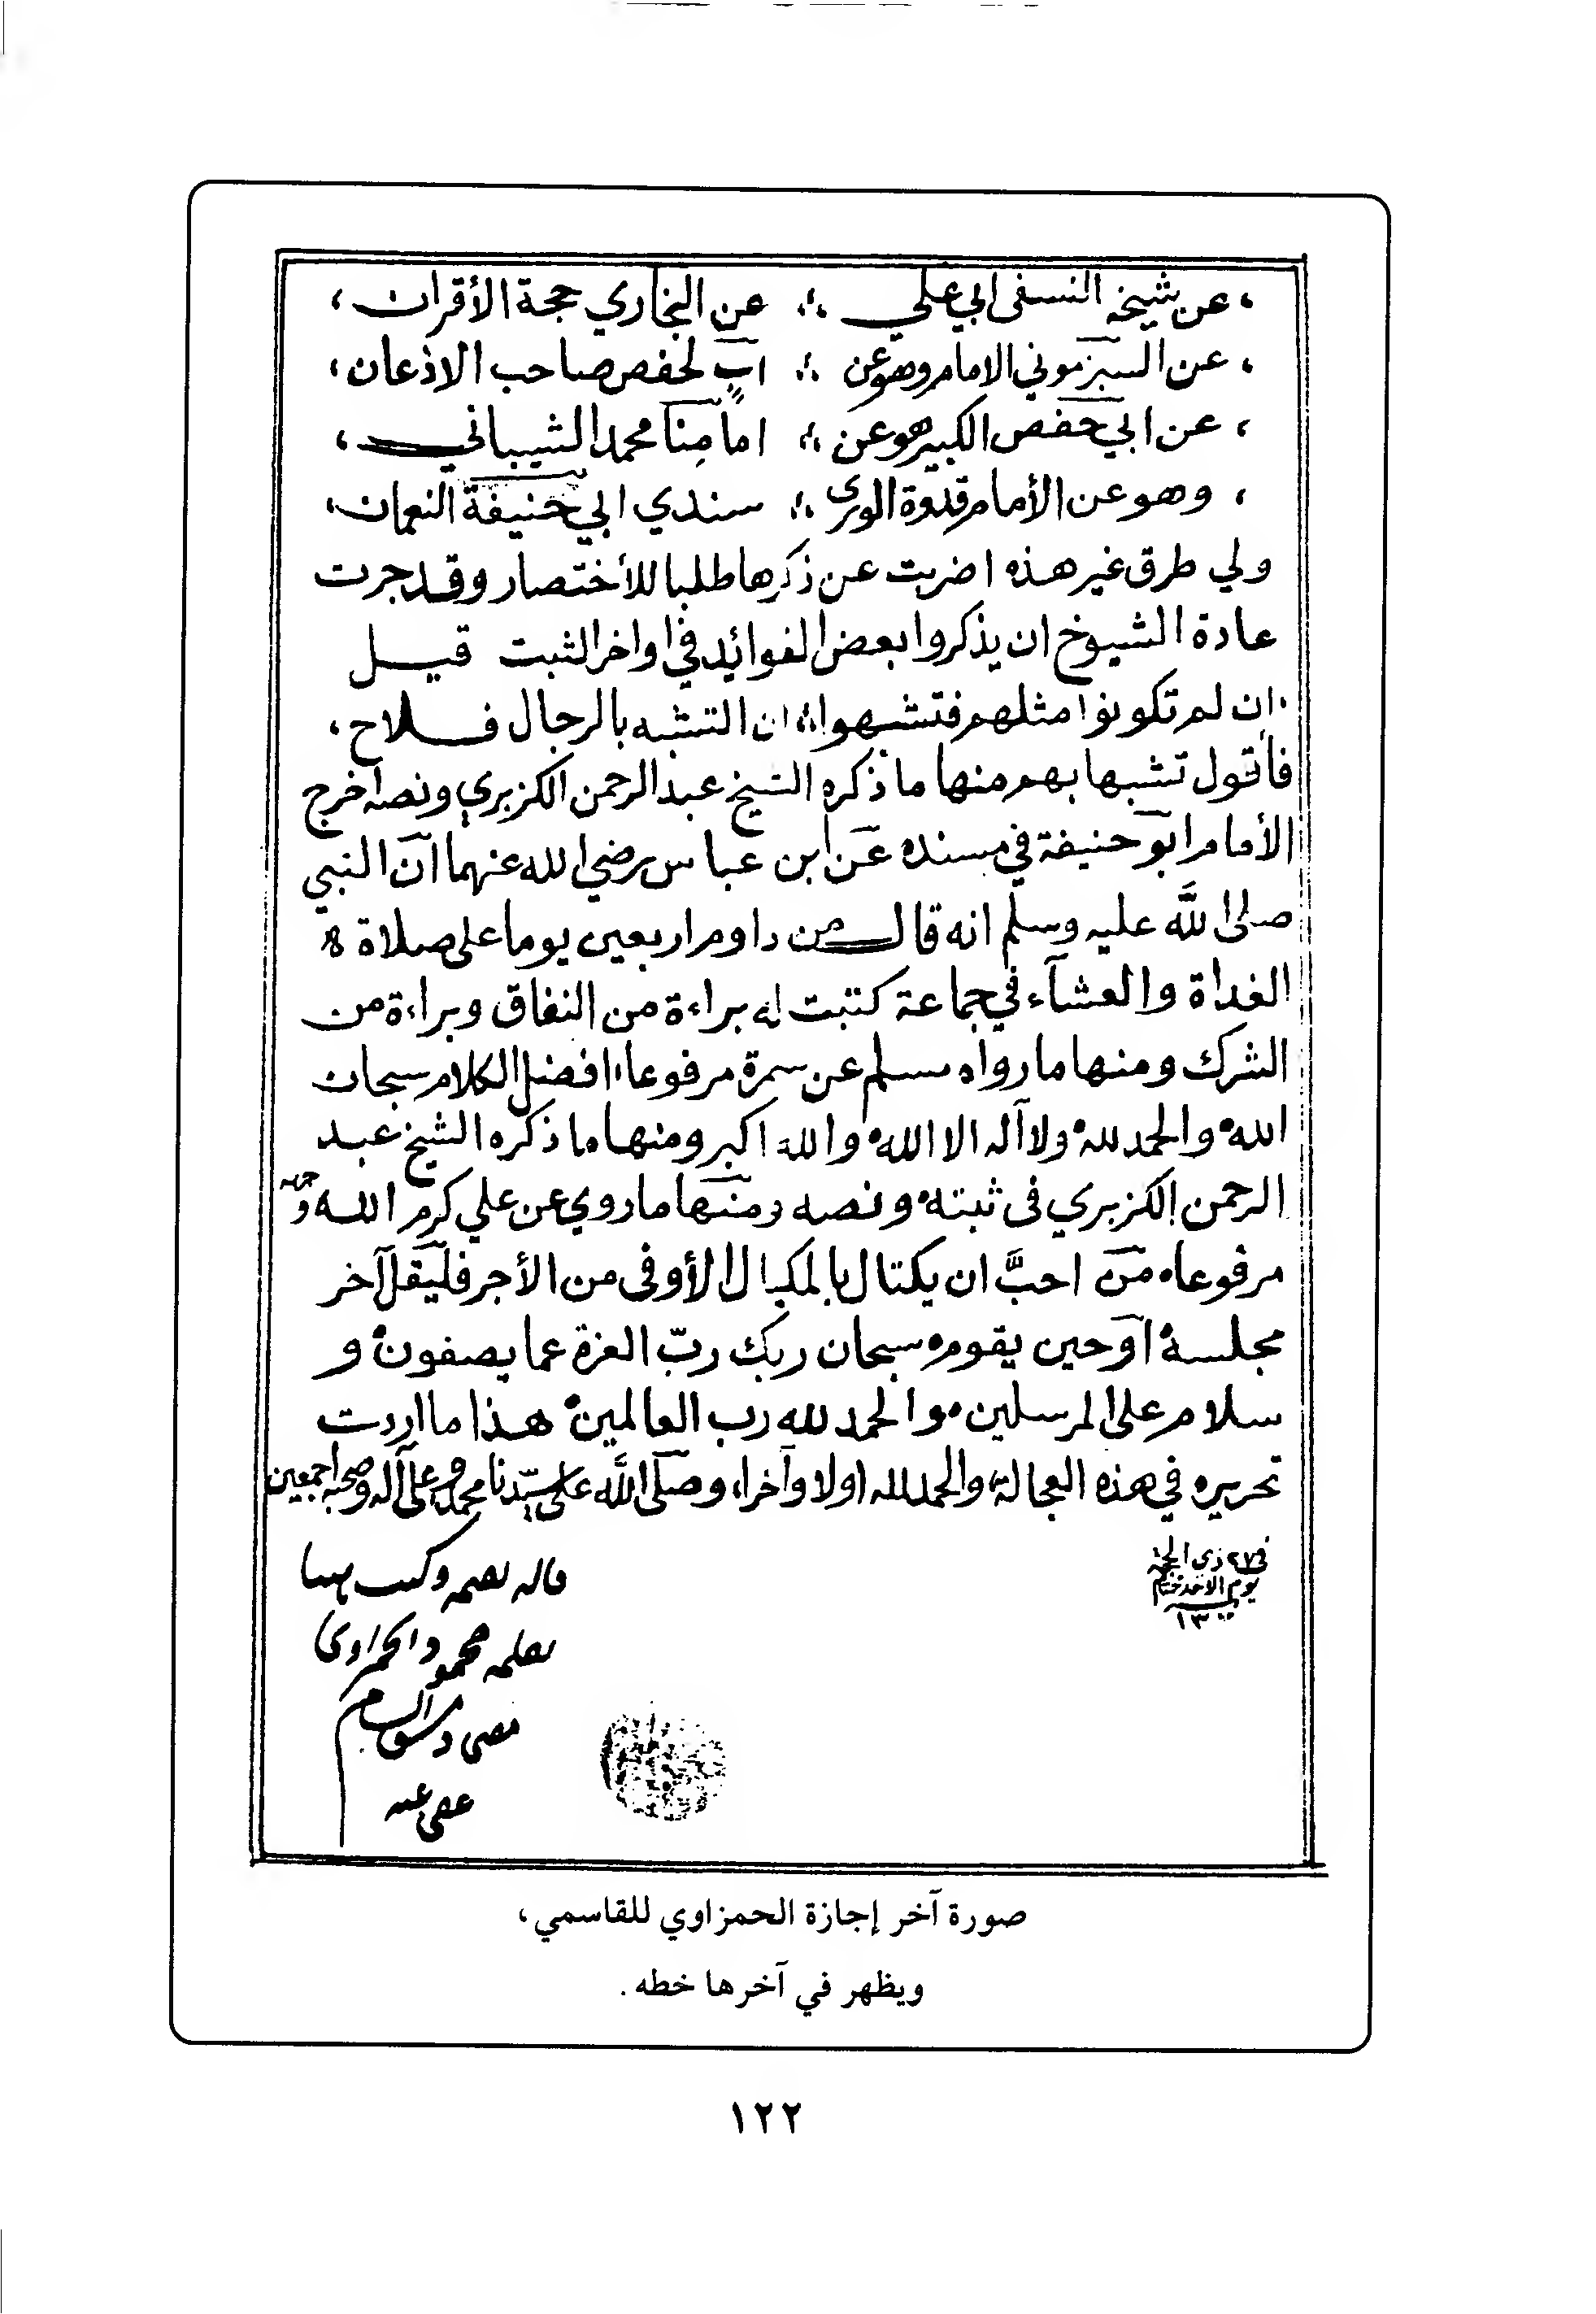 ، عن شيخه النسفى ابي علي ؞ عن البخاري حجة الأقران ،
، عن السبزموني الامام وهو عن ؞ ابٍ لحفص صاحب الاذعان ،
، عن ابي حفص الكبير هو عن ؞ امامِنا محمد الشيباني ،
، وهو عن الأمام قدوة الورى ؞ سندي ابي حنيفة النعمان ،
ولي طرق غير هذه اضربت عن ذكرها طلبا للأختصار وقد جرت
عادة الشيوخ ان يذكروا بعض الفوائيد في اواخر الثبت قيل
، ان لم تكونوا مثلهم فتشبهوا ؞ ان التشبه بالرجال فلاح ،
فأقول تشبها بهم منها ما ذكره الشيخ عبد الرحمن الكزبري ونصه اخرج
الأمام ابو حنيفة في مسنده عن ابن عباس رضي الله عنهما ان النبي
صلى اللَّه عليه وسلم انه قال من داوم اربعين يوما على صلاة
الغداة والعشآء في جماعة كتبت له براءة من النفاق وبراءة من
الشرك ومنها ما رواه مسلم عن سمرة مرفوعا افضل الكلام سبحان
الله والحمد لله ولا آله الا الله والله اكبر ومنها ما ذكره الشيخ عبد
الرحمن الكزبري فى ثبته ونصه ومنها ما روي عن علي كرم الله وجهه
مرفوعا من احبَّ ان يكتال بالمكيال الأوفى من الأجر فليقل آخر
مجلسه اوحين يقوم سبحان ربك ربّ العزة عما يصفون و
سلام على المرسلين والحمد لله رب العالمين هذا ما اردت
تحريره في هذه العجالة والحمد لله اولا وآخرا وصلى اللَّه على سيّدنا محمد وعلى آله وصحبه اجمعين
فى ٢٧ ذى الحجة
يوم الاحد ختام
١٣٠٠
قاله بفمه وكتب
بقلمه محمود الحمزاوى
مفتى دمشق الشام
عفى عنه
صورة آخر إجازة الحمزاوي للقاسمي ،
ويظهر في آخرها خطه .
١٢٢